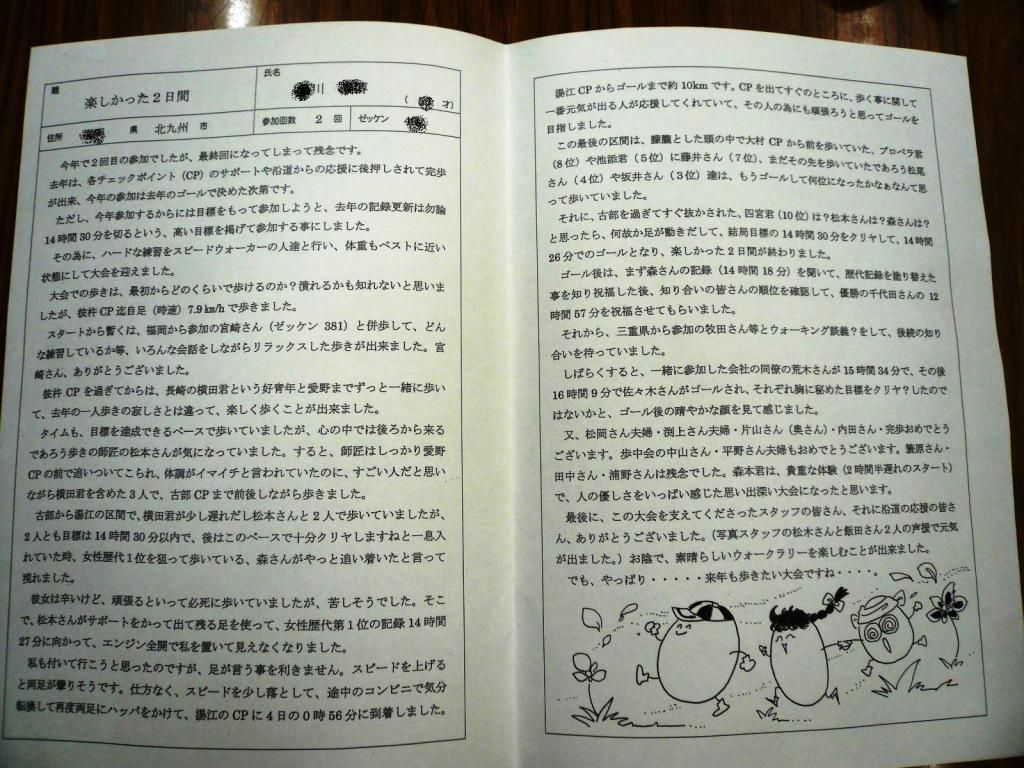 題
楽しかった2日間
氏名
川
( 才)
住所 県 北九州 市
参加回数 2 回
ゼッケン
今年で2回目の参加でしたが、最終回になってしまって残念です。
去年は、各チェックポイント（CP）のサポートや沿道からの応援に後押しされて完歩
が出来、今年の参加は去年のゴールで決めた次第です。
ただし、今年参加するからには目標をもって参加しようと、去年の記録更新は勿論
14時間30分を切るという、高い目標を掲げて参加する事にしました。
その為に、ハードな練習をスピードウォーカーの人達と行い、体重もベストに近い
状態にして大会を迎えました。
大会での歩きは、最初からどのくらいで歩けるのか？潰れるかも知れないと思いま
したが、彼杵CP迄目足（時速）7.9㎞/hで歩きました。
スタートから暫くは、福岡から参加の宮崎さん（ゼッケン 381）と併歩して、どん
な練習しているか等、いろんな会話をしながらリラックスした歩きが出来ました。宮
崎さん、ありがとうございました。
彼杵CPを過ぎてからは、長崎の横田君という好青年と愛野までずっと一緒に歩い
て、去年の一人歩きの寂しさとは違って、楽しく歩くことが出来ました。
タイムも、目標を達成できるペースで歩いていましたが、心の中では後ろから来る
であろう歩きの師匠の松本さんが気になっていました。すると、師匠はしっかり愛野
CPの前で追いついてこられ、体調がイマイチと言われていたのに、すごい人だと思い
ながら横田君を含めた3人で、古部CPまで前後しながら歩きました。
古部から湯江の区間で、横田君が少し遅れだし松本さんと2人で歩いていましたが、
2人とも目標は14時間30分以内で、後はこのペースで十分クリヤしますねと一息入
れていた時、女性歴代1位を狙って歩いている、森さんがやっと追い着いたと言って
現れました。
彼女は辛いけど、頑張るといって必死に歩いていましたが、苦しそうでした。そこ
で、松本さんがサポートをかって出て残る足を使って、女性歴代第1位の記録14時間
27分に向かって、エンジン全開で私を置いて見えなくなりました。
私も付いて行こうと思ったのですが、足が言う事を利きません。スピードを上げる
と両足が攣りそうです。仕方なく、スピードを少し落として、途中のコンビニで気分
転換して再度両足にハッパをかけて、湯江のCPに4日の0時56分に到着しました。
湯江CPからゴールまで約10kmです。CPを出てすぐのところに、歩く事に関して
一番元気が出る人が応援してくれていて、その人の為にも頑張ろうと思ってゴールを
目指しました。
この最後の区間は、朦朧とした頭の中で大村CPから前を歩いていた、プロペラ君
（8位）や池添君（5位）に藤井さん（7位）、まだその先を歩いていたであろう松尾
さん（4位）や坂井さん（3位）達は、もうゴールして何位になったかなぁなんて思
って歩いていました。
それに、古部を過ぎてすぐ抜かされた、四宮君（10位）は？松本さんは？森さんは？
と思ったら、何故か足が動きだして、結局目標の14時間30分をクリヤして、14時間
26分でのゴールとなり、楽しかった2日間が終わりました。
ゴール後は、まず森さんの記録（14時間18分）を聞いて、歴代記録を塗り替えた
事を知り祝福した後、知り合いの皆さんの順位を確認して、優勝の千代田さんの 12
時間57分を祝福させてもらいました。
それから、三重県から参加の牧田さん等とウォーキング談義？をして、後続の知り
合いを待っていました。
しばらくすると、一緒に参加した会社の同僚の荒木さんが15時間34分で、その後
16時間9分で佐々木さんがゴールされ、それぞれ胸に秘めた目標をクリヤ？したので
はないかと、ゴール後の晴やかな顔を見て感じました。
又、松岡さん夫婦・渕上さん夫婦・片山さん（奥さん）・内田さん・完歩おめでとう
ございます。歩中会の中山さん・平野さん夫婦もおめでとうございます。簑原さん・
田中さん・浦野さんは残念でした。森本君は、貴重な体験（2時間半遅れのスタート）
で、人の優しさをいっぱい感じた思い出深い大会になったと思います。
最後に、この大会を支えてくださったスタッフの皆さん、それに沿道の応援の皆さ
ん、ありがとうございました。（写真スタッフの松木さんと飯田さん2人の声援で元気
が出ました。）お陰で、素晴らしいウォークラリーを楽しむことが出来ました。
でも、やっぱり・・・・・来年も歩きたい大会ですね・・・・。